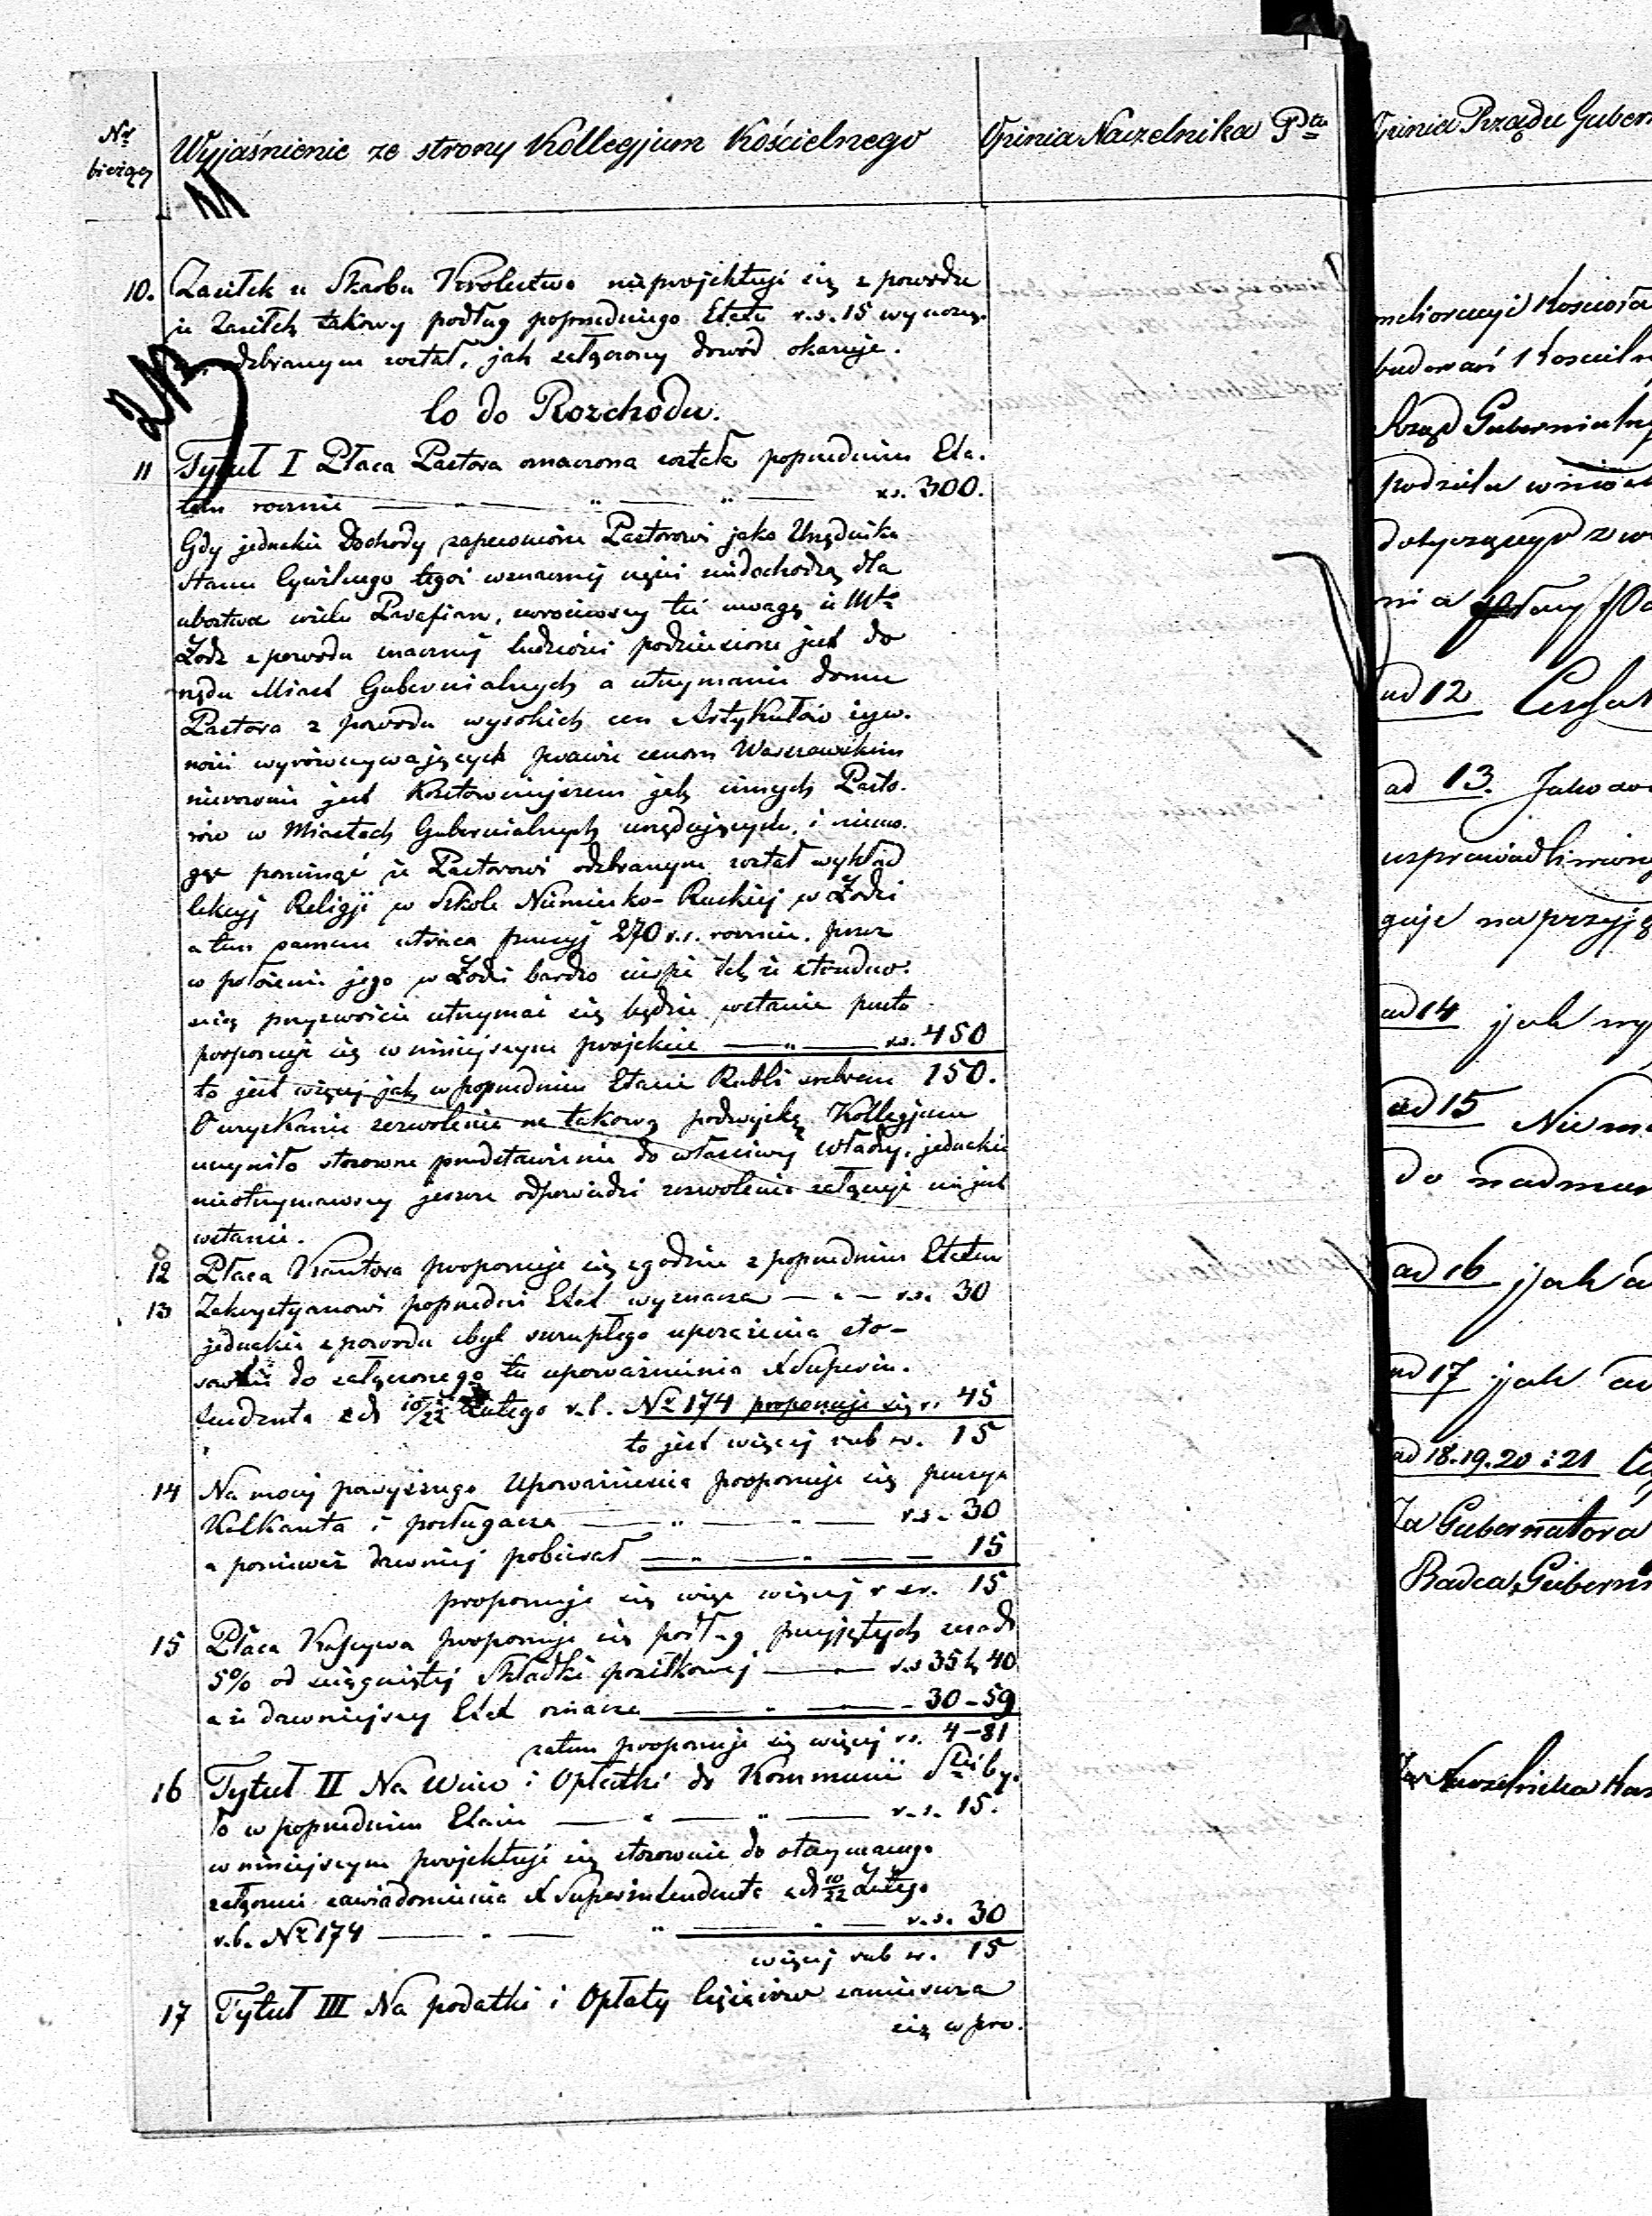 Nr bieżący
Wyjaśnienie ze strony Kollegjum Kościelnego
Opinia Naczelnika Ptu
Opinia Rządu Gubern
10. Zasiłek z Skarbu Królestwa nieprojektuje się z powodu
iż Zasiłek takowy podług poprzedniego Etatu r.s. 15 wynoszą-
odebranym został, jak załączony dowód okazuje.
Co do Rozchodu.
11 Tytuł I Płaca Pastora oznaczona została poprzednim Eta-
tem rocznie — „ — „ — rs. 300.
Gdy jednakże Dochody zapewnione Pastorowi jako Urzędnika
Stanu Cywilnego tegoż wznacznej części niedochodzą dla
ubóstwa wielu Parafian, zwróciwszy też uwagę iż Mto
Łódź z powodu znacznej ludności podniesione jest do
rzędu Miast Gubernialnych a utrzymanie domu
Pastora z powodu wysokich cen Artykułów żyw-
ności wyrównywających prawie cenom Warszawskim
nierównie jest kosztowniejszem jak innych Pasto-
rów w Miastach Gubernialnych urzędujących, i niemo-
gąc pominąć iż Pastorowi odebranym został wykład
lekcyj Religji w Szkole Niemiecko-Ruskiej w Łodzi
a tem samem utraca pensyj 270 r.s. rocznie, przez
w położeniu jego w Łodzi bardzo tak iż
przyzwoicie utrzymać się będzie wstanie przeto
proponuje się w niniejszym projekcie — „ — rs. 450
to jest więcej jak w poprzednim Etacie Rubli srebrem 150.
O uzyskanie zezwolenia na takową podwyżkę Kollegjum
uczyniło stosowne przedstawienie do właściwej władzy, jednakże
nieotrzymawszy jeszcze odpowiedzi zezwolenia załączyć niejest
wstanie.
12 Płaca Kantora proponuje się zgodnie z poprzednim Etatem
13 Zakrystyanowi poprzedni Etat wyznacza — „ — rs. 30
jednakże z powodu zbyt szczupłego uposażenia sto-
sownie do załączonego tu upoważnienia X Superin-
tendenta z d. 10/22 Lutego r.b. Nr 174 proponuje się rs. 45
to jest więcej rub sr. 15
14 Na mocy powyższego Upoważnienia proponuje się pensya
Kalkanta i posługacza — „ — „ — r.s. 30
a ponieważ dawniej pobierał — „ — „ — 15
proponuje się więc więcej r sr. 15
15 Płaca Kassyera proponuje się podług przyjętych zasad
5% od ściągniętej Składki posiłkowej — r.s 35 k 40
a iż dawniejszy Etat oznacza — „ — 30 - 59
zatem proponuje się więcej r.s. 4 - 81
16 Tytuł II Na Wino i Opłatki do Kommunii Stej by-
ło w poprzednim Etacie — „ — „ — r.s. 15.
w niniejszym projektuje się stosownie do otrzymanego
zawiadomienia X Superintendenta z d 10/22 Lutego
r.b. Nr 174 — „ — „ — „ — r.s. 30
więcej rub sr. 15
17 Tytuł III Na podatki i Opłaty zamieszcza
się w pro-
melioracyi Kościoła
budowań Kościeln
Rząd Gubernialny
podziela wniosek
dotyczący
nia płacy Pa
ad 12
ad 13. Jako
usprawiedliwiony
guje na przyję
ad 14 jak wy
ad 15 Niema
do nadmien
ad 16 jak a
ad 17 jak a
ad 18.19.20 i 21
Za Gubernatora
Radca Gubern
Za Naczelnika Kan